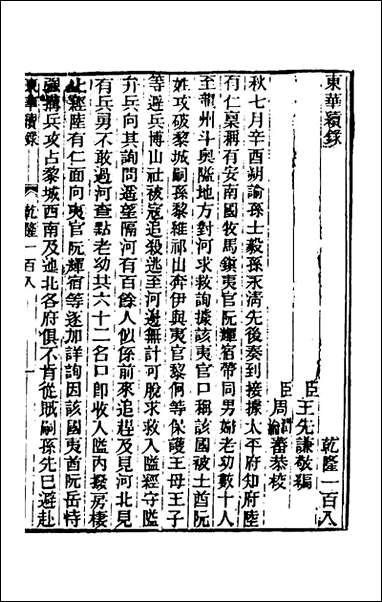 東華續錄
乾隆一百八
臣王先謙敬編
臣周潤蕃恭校
秋七月辛酉朔諭孫士毅孫永淸先後奏到接據太平府知府陸
有仁稟稱有安南國牧馬鎮夷官阮輝宿帶同男婦老幼數十人
至龍州斗奧隘地方對河求救詢據該夷官口稱該國被土酋阮
姓攻破黎城嗣孫黎維祁出奔伊與夷官黎侗等保護王母王子
等避兵博山社被寇追殺逃至河邊無計可脫求救入隘經守隘
弁兵向其詢問遙望隔河有百餘人似係前來追趕及見河北見
有兵勇不敢過河查點老幼共六十二名口卽收入隘內撥房棲
止經陸有仁面向夷官阮輝宿等逐加詳詢因該國夷首阮岳恃
強搆兵攻占黎城西南及迤北各府俱不肯從賊嗣孫先已避赴
東華續錄
乾隆一百八
一